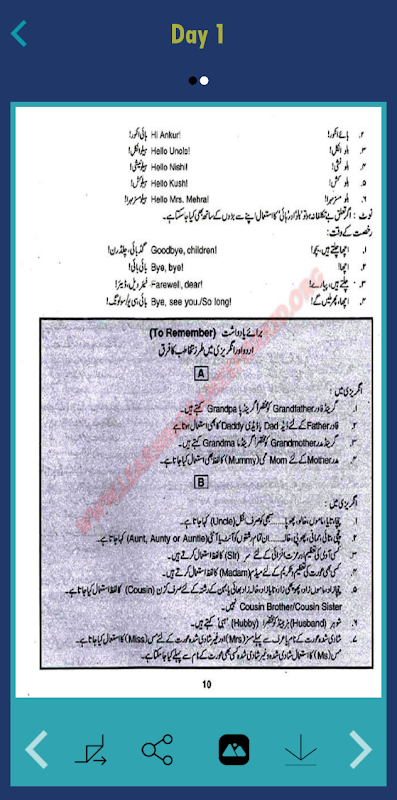 Day 1
۲. ہائے انکور! Hi Ankur! ہائی انکور!
۳. ہلو انکل! Hello Uncle! ہیلو انکل!
۴. ہلو نشی! Hello Nishi! ہیلو نشی!
۵. ہلو کش! Hello Kush! ہیلو کش!
۶. ہلو مسز مہرا! Hello Mrs. Mehra! ہیلو مسز مہرا!
نوٹ : اگر تعلق بے تکلفانہ ہو تو 'ہلو' اور 'ہائی' کا استعمال اپنے سے بڑوں کے ساتھ بھی کیا جا سکتا ہے۔
رخصت کے وقت:
۱. اچھا چلتے ہیں، بچو! Goodbye, children! گڈ بائی، چلڈرن!
۲. اچھا! Bye, bye! بائی بائی!
۳. چلتے ہیں، پیارے! Farewell, dear! فیئرویل، ڈیئر!
۴. اچھا، پھر ملیں گے! Bye, see you./So long! بائی، سی یو/سو لونگ!
برائے یادداشت (To Remember)
اردو اور انگریزی میں طرز تخاطب کا فرق
A
انگریزی میں :
۱. گرینڈ فادر Grandfather کو مختصراً گرینڈ پا Grandpa کہتے ہیں۔
۲. فادر Father کے لئے ڈیڈ Dad یا ڈیڈی Daddy کا بھی استعمال ہوتا ہے
۳. گرینڈ مدر Grandmother کو مختصراً گرینڈ ما Grandma کہتے ہیں۔
۴. مدر Mother کے لئے Mom ممی (Mummy) کا لفظ بھی استعمال کیا جاتا ہے۔
B
انگریزی میں :
۱. چچا، تایا، ماموں، خالو، پھوپا سبھی کو صرف انکل (Uncle) کہا جاتا ہے۔
۲. چچی، تائی، ممانی، پھوپی، خالہ ان تمام رشتوں کو آنٹ یا آنٹی (Aunt, Aunty or Auntie) کہا جاتا ہے۔
۳. کسی آدمی کی تعظیم اور عزت افزائی کے لئے سر (Sir) کا لفظ استعمال کرتے ہیں۔
۴. کسی بھی عورت کی تعظیم و تکریم کے لئے میڈم (Madam) کا لفظ استعمال کرتے ہیں۔
۵. چچا زاد، ماموں زاد، پھوپھی زاد، تایا زاد اور خالہ زاد بھائی یا بہن کے رشتہ کے لئے صرف کزن (Cousin) کا لفظ استعمال کیا جاتا ہے۔
Cousin Brother/Cousin Sister نہیں۔
۶. شوہر (Husband) ہزبینڈ کو مختصراً (Hubby) 'ہبی' کہتے ہیں۔
۷. شادی شدہ عورت کے نام یا عرف سے پہلے مسز (Mrs) اور غیر شادی شدہ عورت کے لئے مس (Miss) کا استعمال کیا جاتا ہے۔
مس (Ms) کا استعمال شادی شدہ و غیر شادی شدہ کسی بھی عورت کے نام سے پہلے کیا جا سکتا ہے۔
10